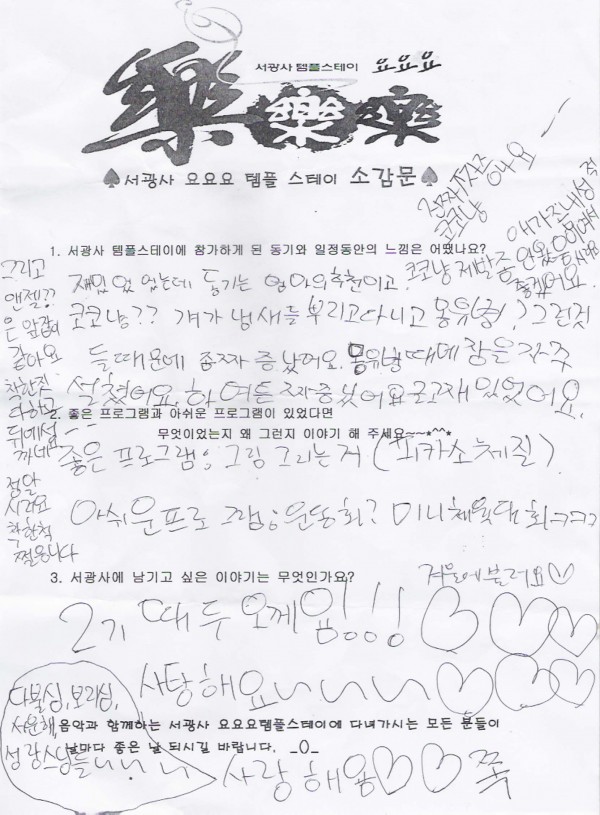 서광사 템플스테이 요요요
樂 樂 樂
♠서광사 요요요 템플 스테이 소감문♠
진짜 짜증
코코냥 아나요
1. 서광사 템플스테이에 참가하게 된 동기와 일정동안의 느낌은 어땠나요?
재밌었었는데 동기는 엄마의추천이고! 코코냥 제발좀
좋겠어요.
코코냥?? 걔가 냄새를 부리고다니고 몽유병! 그런것
들때문에 좀짜증났어요. 몽유병때메 잠을 자주
설쳤어요. 하여튼 짜증났어요 그리고재있었어요.
그리고
앤젤??
은 앞뒤가
같아요
착한척
다하고
뒤에서
까네
정말
시러요
착한척
쩔음니다
2. 좋은 프로그램과 아쉬운 프로그램이 있었다면
무엇이었는지 왜 그런지 이야기 해 주세요~~*^^*
좋은 프로그램; 그림 그리는거 (피카소체질).
아쉬운프로그램; 운동회? 미니체육대회ㅋㅋㅋ
3. 서광사에 남기고 싶은 이야기는 무엇인가요?
겨울에불러요♡
2기 때두 오께임!!! ♡♡♡
사탕해요~~~ ♡♡♡♡
다불심,보리심,
서운해,
성광스님들~~~
음악과 함께하는 서광사 요요요템플스테이에 다녀가시는 모든 분들이
날마다 좋은 날 되시길 바랍니다. _0_
사랑해용♡♡쪽